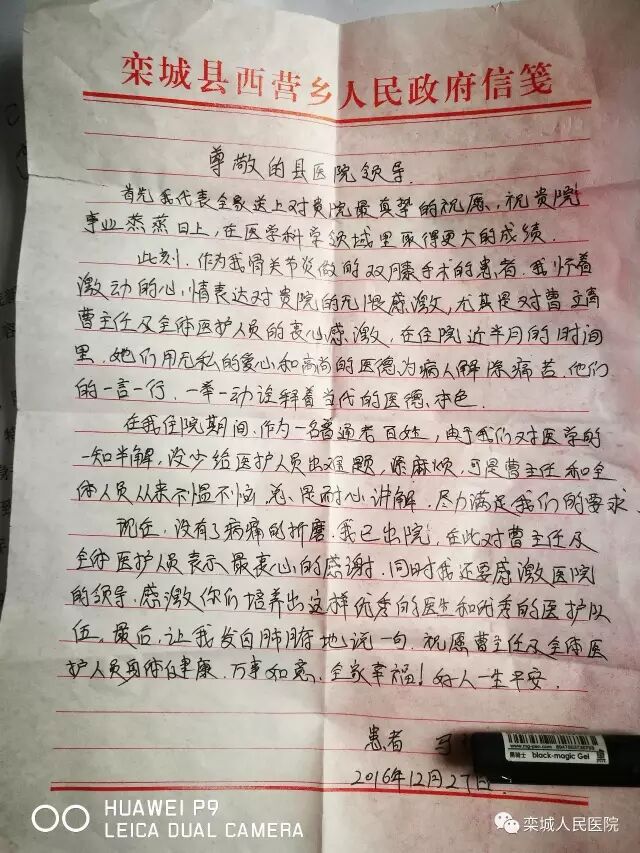 栾城县西营乡人民政府信笺
尊敬的县医院领导
首先我代表全家送上对贵院最真挚的祝愿,祝贵院
事业蒸蒸日上,在医学科学领域里取得更大的成绩.
此刻.作为我骨关节炎做的双膝手术的患者.我怀着
激动的心,情表达对贵院的无限感激,尤其是对曹立青
曹主任及全体医护人员的衷心感激,在住院近半月的时间
里.她们用无私的爱心和高尚的医德,为病人解除痛苦.他们
的一言一行.一举一动诠释着当代的医德.本色.
在我住院期间.作为一名普通老百姓,由于我们对医学的
一知半解,没少给医护人员出难题,添麻烦,可是曹主任和全
体人员从来不愠不恼,总是耐心讲解.尽力满足我们的要求.
现在,没有了病痛的折磨.我已出院,在此对曹主任及
全体医护人员表示最衷心的感谢,同时我还要感激医院
的领导.感激你们培养出这样优秀的医生和优秀的医护队
伍.最后,让我发自肺腑地说一句.祝愿曹主任及全体医
护人员身体健康.万事如意.全家幸福!好人一生平安.
患者
2016年12月27日.
www.mg-pen.com
黑骑士 black-magic Gel
HUAWEI P9
LEICA DUAL CAMERA
栾城人民医院